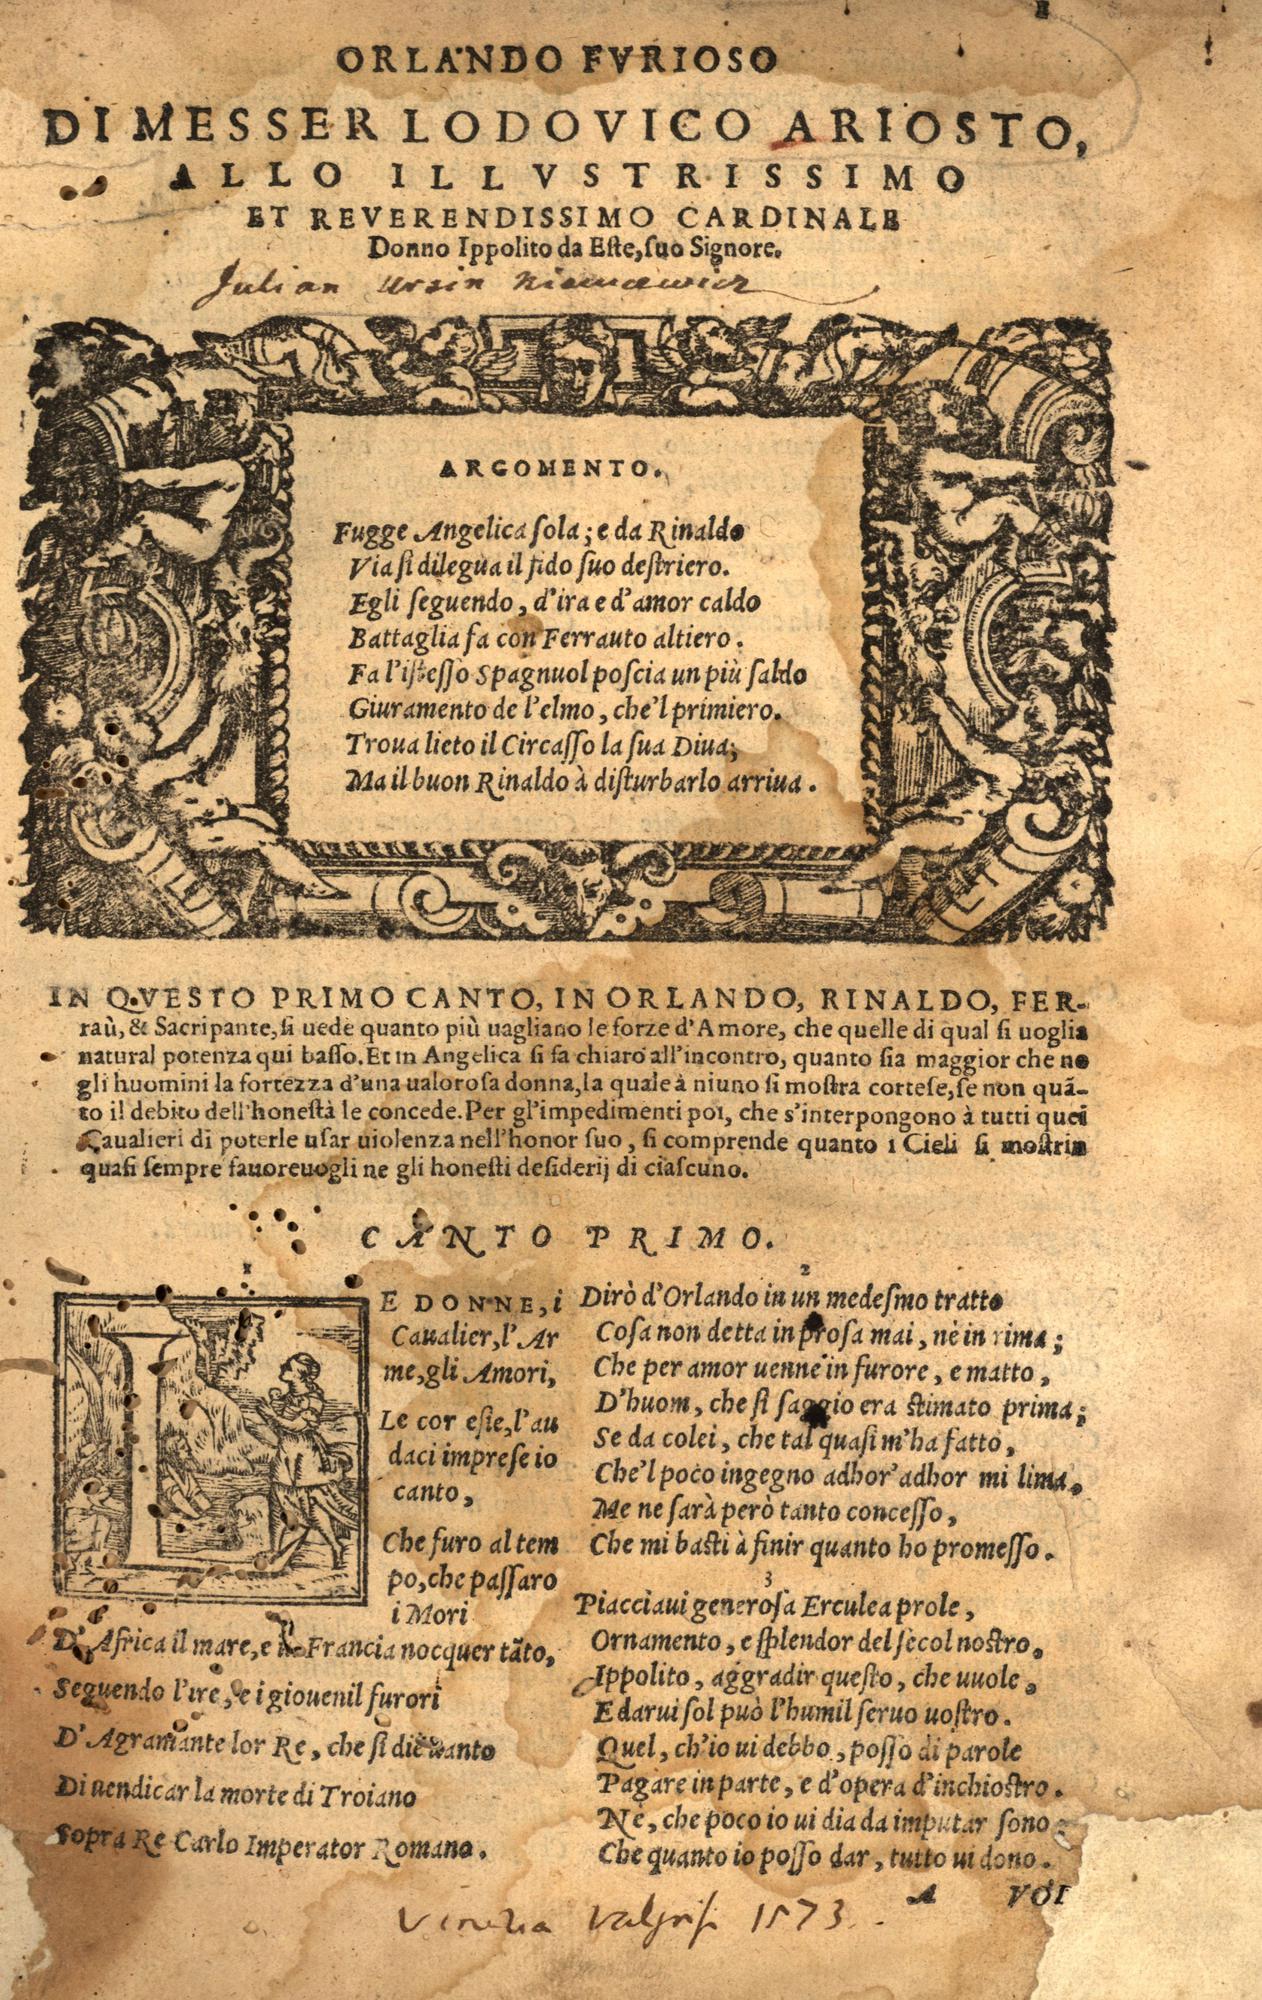 ORLANDO FVRIOSO
DI MESSER LODOVICO ARIOSTO,
ALLO ILLVSTRISSIMO
ET REVERENDISSIMO CARDINALE
Donno Ippolito da Eſte, ſuo Signore.
Julian Ursin Niemcewicz
ARGOMENTO.
Fugge Angelica ſola; e da Rinaldo
Via ſi dilegua il fido ſuo deſtriero.
Egli ſeguendo, d'ira e d'amor caldo
Battaglia fa con Ferrauto altiero.
Fa l'iſteſſo Spagnuol poſcia un più ſaldo
Giuramento de l'elmo, che'l primiero.
Troua lieto il Circaſſo la ſua Diua;
Ma il buon Rinaldo à diſturbarlo arriua.
IN QVESTO PRIMO CANTO, IN ORLANDO, RINALDO, FER-
raù, & Sacripante, ſi uede quanto più uagliano le forze d'Amore, che quelle di qual ſi uoglia
natural potenza qui baſſo. Et in Angelica ſi fa chiaro all'incontro, quanto ſia maggior che ne
gli huomini la fortezza d'una ualoroſa donna, la quale à niuno ſi moſtra corteſe, ſe non quã-
to il debito dell'honeſtà le concede. Per gl'impedimenti poi, che s'interpongono à tutti quei
Caualieri di poterle uſar uiolenza nell'honor ſuo, ſi comprende quanto i Cieli ſi moſtrin
quaſi ſempre fauoreuogli ne gli honeſti deſiderij di ciaſcuno.
CANTO PRIMO.
1
LE DONNE, i
Caualier, l'Ar
me, gli Amori,
Le cor eſie, l'au
daci impreſe io
canto,
Che furo al tem
po, che paſſaro
i Mori
D'Africa il mare, e in Francia nocquer tãto,
Seguendo l'ire, e i giouenil furori
D'Agramante lor Re, che ſi diè uanto
Di uendicar la morte di Troiano
Sopra Re Carlo Imperator Romano.
2
Dirò d'Orlando in un medeſmo tratto
Coſa non detta in proſa mai, nè in rima;
Che per amor uenne in furore, e matto,
D'huom, che ſì ſaggio era ſtimato prima;
Se da colei, che tal quaſi m'ha fatto,
Che'l poco ingegno adhor'adhor mi lima,
Me ne ſarà però tanto conceſſo,
Che mi baſti à finir quanto ho promeſſo.
3
Piacciaui generoſa Erculea prole,
Ornamento, e ſplendor del ſecol noſtro,
Ippolito, aggradir queſto, che uuole,
E darui ſol può l'humil ſeruo uoſtro.
Quel, ch'io ui debbo, poſſo di parole
Pagare in parte, e d'opera d'inchioſtro.
Nè, che poco io ui dia da imputar ſono
Che quanto io poſſo dar, tutto ui dono.
A VOI
Venezia Valgrisi 1573.